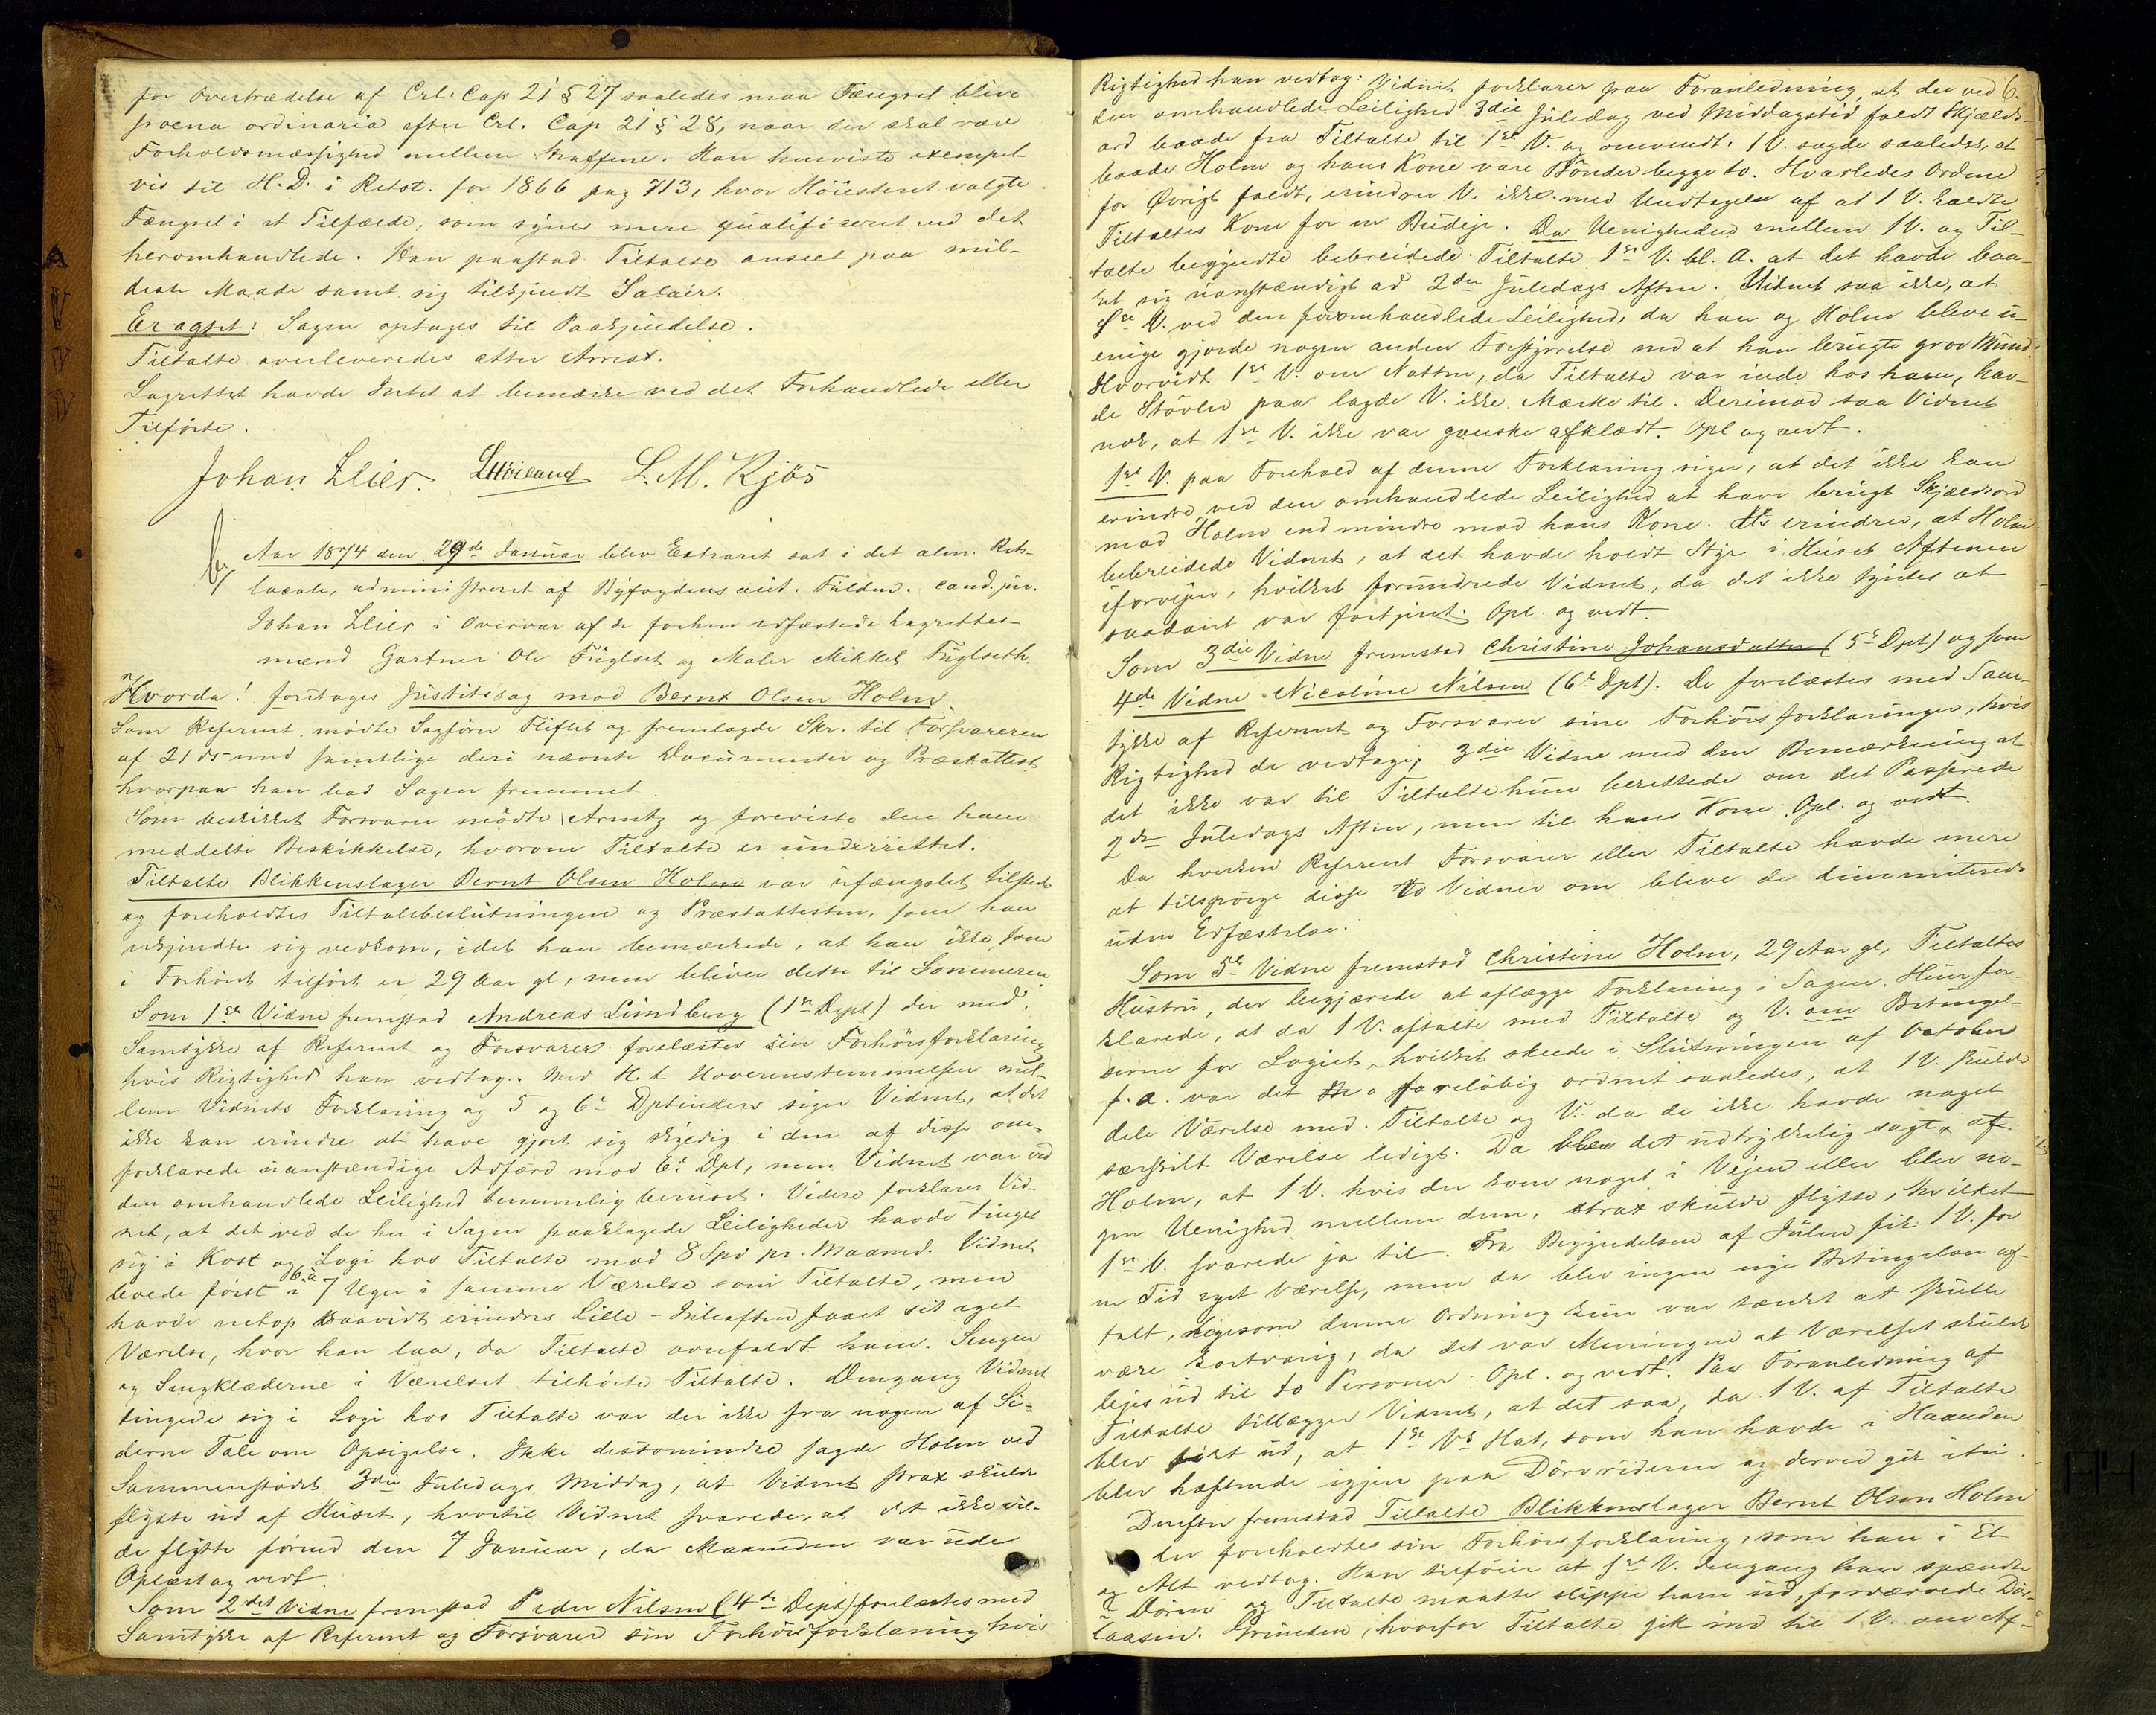 for Overtrædelse af Crl. Cap 21 § 27 saaledes maa Fængsel blive
poena ordinaria efter Crl. Cap 21 § 28, naar der skal være
Forholdsmæssighed mellem Straffene. Han henviste exempel-
vis til H. D. i Retst. for 1866 pag 713, hvor Höiesteret valgte
Fængsel i et Tilfælde, som synes mere qualificeret end det
heromhandlede. Han paastod Tiltalte anseet paa mil-
deste Maade samt sig tilkjendt Salair.
Er agtet: Sagen optages til Paakjendelse.
Tiltalte overleveredes atter Arrest.
Lagrettet havde Intet at bemærke ved det Forhandlede eller
Tilförte.
Johan Lliei. LHöiland L. M. Kjös
Aar 1874 den 29de Januar blev Extraret sat i det alm. Rets-
locale, administreret af Byfogdens aut. Fuldm. cand. jur.
Johan Lliei i Overvær af de forhen edfæstede Lagrettes-
mænd Gartner Ole Fuglset og Maler Mikkel Fuglseth.
Hvorda! foretages Justitssag mod Bernt Olsen Holm.
Som Referent mödte Sagförer Fliflet og fremlagde Skr. til Forsvareren
af 21 ds med samtlige deri nævnte Documenter og Præstattest
hvorpaa han bad Sagen fremmet.
Som beskikket Forsvarer mödte Arentz og foreviste den ham
meddelte Beskikkelse, hvorom Tiltalte er underrettet.
Tiltalte Blikkenslager Bernt Olsen Holm var ufængslet tilstede
og foreholdtes Tiltalebeslutningen og Præstattesten, som han
erkjendte sig vedkom, idet han bemærkede, at han ikke, som
i Forhöret tilfört er 29 Aar gl, men bliver dette til Sommeren
Som 1ste Vidne fremstod Andreas Lundberg (1ste Dept) der med
Samtykke af Referent og Forsvarer forelæstes sin Forhörsforklaring
hvis Rigtighed han vedtog. Med H. t Uoverensstemmelsen mel-
lem Vidnets Forklaring og 5 og 6te Dptinders siger Vidnet, at det
ikke kan erindre at have gjort sig skyldig i den af disse om-
forklarede uanstændige Adfærd mod 6te Dpt, men Vidnet var ved
den omhandlede Leilighed temmelig beruset. Videre forklarer Vid-
net, at det ved de her i Sagen paaklagede Leiligheder havde tinget
sig i Kost og Logi hos Tiltalte mod 8 Spd pr. Maaned. Vidnet
boede först i 6 à 7 Uger i samme Værelse som Tiltalte, men
havde netop saavidt erindres Lille-Juleaften faaet sit eget
Værelse, hvor han laa, da Tiltalte overfaldt ham. Sengen
og Sengklæderne i Værelset tilhörte Tiltalte. Dengang Vidnet
tingede sig i Logi hos Tiltalte var der ikke fra nogen af Si-
derne Tale om Opsigelse. Ikke destomindre sagde Holm ved
Sammenstödet 3die Juledags Middag, at Vidnet strax skulde
flytte ud af Huset, hvortil Vidnet svarede, at det ikke vil-
de flytte förend den 7 Januar, da Maaneden var ude
Oplæst og vedt.
Som 2det Vidne fremstod Peder Nilsen (4de Dept) forelæstes med
Samtykke af Referent og Forsvarer sin Forhörsforklaring hvis
6.
Rigtighed han vedtog. Vidnet forklarer paa Foranledning, at der ved
den omhandlede Leilighed 3die Juledag ved Middagstid faldt Skjælds-
ord baade fra Tiltalte til 1ste V. og omvendt. 1 V. sagde saaledes, at
baade Holm og hans Kone vare Bönder begge to. Hvorledes Ordene
for Övrigt faldt, erindrer V. ikke med Undtagelse af at 1 V. kaldte
Tiltaltes Kone for en Budeje. Da Uenigheden mellem 1 V. og Til-
talte begyndte bebreidede Tiltalte 1ste V. bl. A. at det havde baa-
ret sig uanstændigt ad 2den Juledags Aften. Vidnet saa ikke, at
1ste V. ved den foromhandlede Leilighed, da han og Holm bleve u-
enige gjorde nogen anden Forstyrrelse end at han brugte grov Mund.
Hvorvidt 1ste V. om Natten, da Tiltalte var inde hos ham, hav-
de Stövler paa lagde V. ikke Mærke til. Derimod saa Vidnet
nok, at 1ste V. ikke var ganske afklædt. Opl og vedt.
1ste V. paa Forehold af denne Forklaring siger, at det ikke kan
erindre ved den omhandlede Leilighed at have brugt Skjældsord
mod Holm end mindre mod hans Kone. erindrer, at Holm
bebreidede Vidnet, at det havde holdt Styr i Huset Aftenen
iforvejen, hvilket forundrede Vidnet, da det ikke syntes at
saadant var fortjent. Opl. og vedt.
Som 3die Vidne fremstod Christine Johansdatter (5te Dpt) og som
4de Vidne Nicoline Nilsen (6te Dpt). De forelæstes med Sam-
tykke af Referent og Forsvarer sine Forhörsforklaringer, hvis
Rigtighed de vedtoge, 3die Vidne med den Bemærkning at
det ikke var til Tiltalte hun berettede om det Passerede
2den Juledags Aften, men til hans Kone. Opl. og vedt.
Da hverken Referent Forsvarer eller Tiltalte havde mere
at tilspörge disse to Vidner om bleve de dimmitterede
uden Edfæstelse.
Som 5te Vidne fremstod Christine Holm, 29 Aar gl, Tiltaltes
Hustru, der begjærede at aflægge Forklaring i Sagen. Hun for-
klarede, at da 1 V. aftalte med Tiltalte og V. om Betingel-
serne for Logiet, hvilket skede i Slutningen af October
f. a. var det foreløbig ordnet saaledes, at 1 V. skulde
dele Værelse med Tiltalte og V. da de ikke havde noget
særskilt Værelse ledigt. Da blev det udtrykkelig sagt af
Holm, at 1 V. hvis der kom noget i Vejen eller blev no-
gen Uenighed mellem dem, strax skulde flytte, hvilket
1ste V. svarede ja til. Fra Begyndelsen af Julen fik 1 V. for
en Tid eget Værelse, men da blev ingen nye Betingelser af-
talt, ligesom denne Ordning kun var tænkt at skulle
være kortvarig, da det var Meningen at Værelset skulde
lejes ud til to Personer. Opl. og vedt. Paa Foranledning af
Tiltalte tillægger Vidnet, at det saa, da 1 V. af Tiltalte
blev fört ud, at 1ste Vs Hat, som han havde i Haanden
blev hæftende igjen paa Dörvrideren og derved gik itu.
Derefter fremstod Tiltalte Blikkenslager Bernt Olsen Holm
der foreholdtes sin Forhörsforklaring, som han i Et
og Alt vedtog. Han tilföier at 1ste V. dengang han spændte
i Dören og Tiltalte maatte slippe ham ud, fordærvede Dör-
laasen. Grunden, hvorfor Tiltalte gik ind til 1 V. om Af-